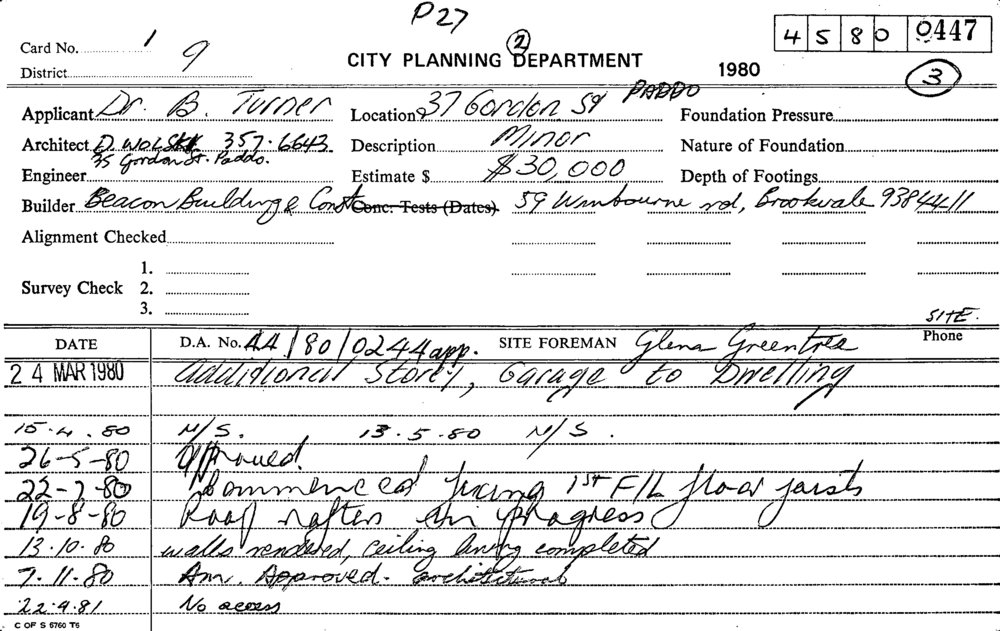 P27
4 5 8 0 0447
Card No. 1 9
2
CITY PLANNING DEPARTMENT
District
1980
3
Applicant Dr. B. Turner Location 37 Gordon Sq PADDO Foundation Pressure
Architect D. WOLSKI 357.6643 Description Minor Nature of Foundation
35 Gordon St. Paddo.
Engineer Estimate $ $30,000 Depth of Footings
Builder Beacon Building & Const Conc. Tests (Dates) 59 Winbourne rd, Brookvale 9384411
Alignment Checked
1.
Survey Check 2.
3.
SITE.
DATE D.A. No. 44/80/0244 app. SITE FOREMAN Glenn Greentree Phone
24 MAR 1980 Additional Storey, Garage to Dwelling
15.4.80 N/S. 13.5.80 N/S.
26-5-80 Approved.
22-7-80 Commenced fixing 1ST F/L floor joists
19-8-80 Roof rafters in progress
13.10.80 walls rendered, ceiling lining completed
7.11.80 Am. Approved. architectural
22.9.81 No access
C OF S 6760 T6